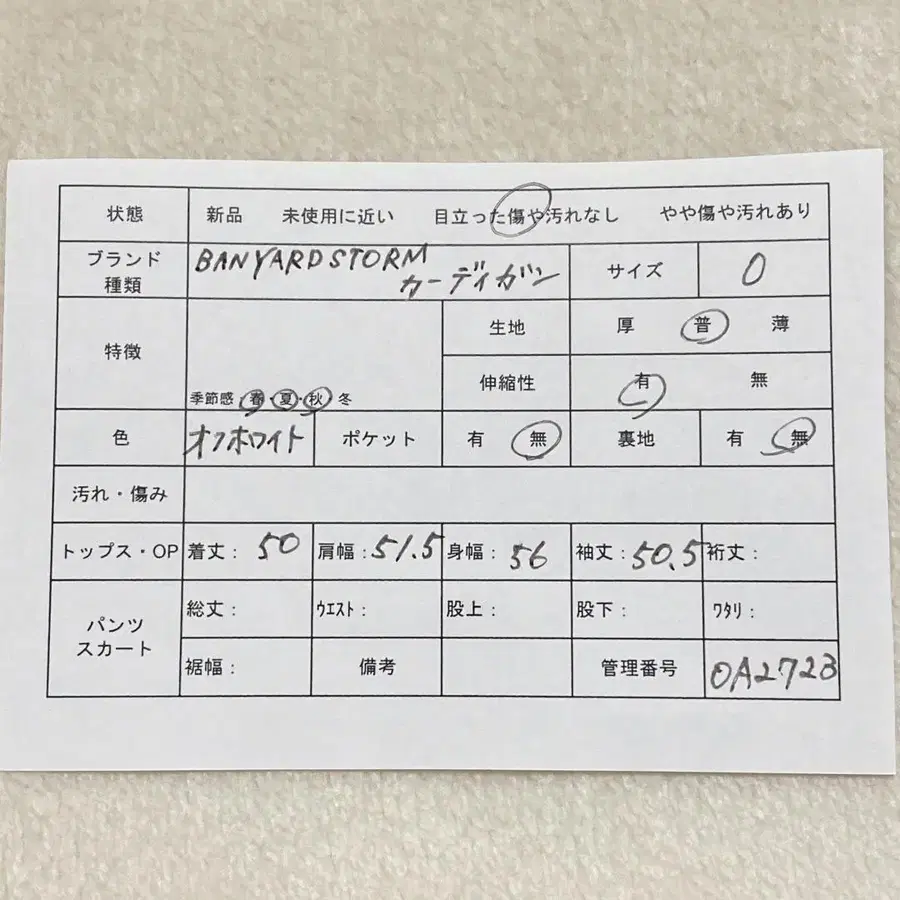 状態 新品 未使用に近い 目立った傷や汚れなし やや傷や汚れあり
ブランド 種類 BANYARDSTORM カーディガン サイズ 0
特徴 季節感:春・夏・秋 冬
生地 厚 普 薄
伸縮性 有 無
色 オフホワイト ポケット 有 無 裏地 有 無
汚れ・傷み
トップス・OP 着丈: 50 肩幅:51.5 身幅: 56 袖丈:50.5 裄丈:
パンツ スカート 総丈: ウエスト: 股上: 股下: ワタリ:
裾幅: 備考 管理番号 OA2723